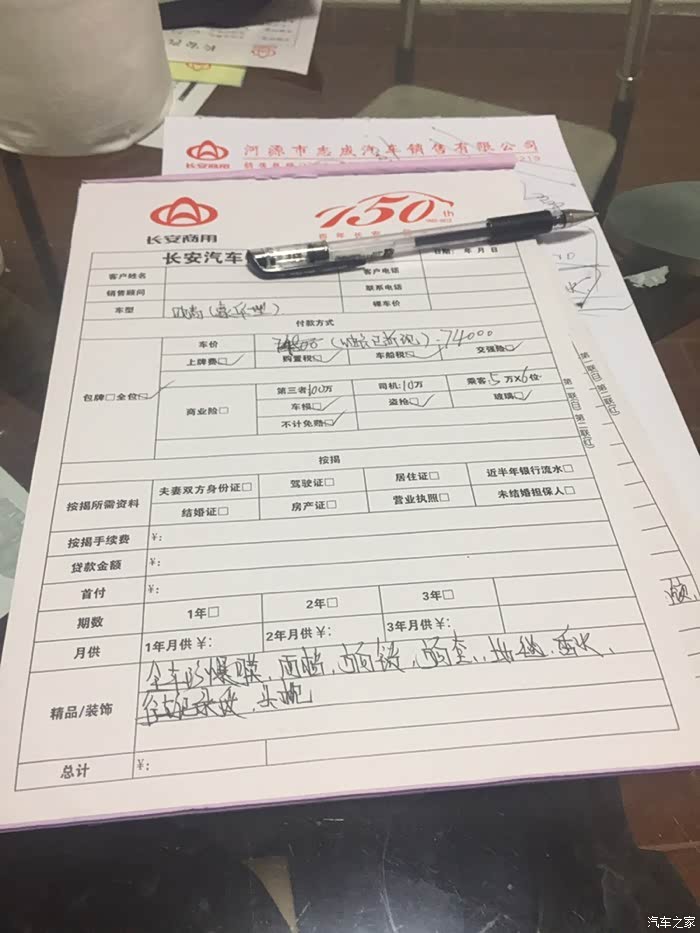 河源市志成汽车销售有限公司
长安商用
长安商用
150th
百年长安
长安汽车
日期: 年 月 日
客户姓名 客户电话
销售顾问 联系电话
车型 裸车价
付款方式
车价 74000
上牌费□ 购置税□ 车船税□ 交强险□
包牌□全位□
商业险□
第三者100万 司机10万 乘客5万X6位
车损□ 盗抢□ 玻璃□
不计免赔□
按揭
按揭所需资料
夫妻双方身份证□ 驾驶证□ 居住证□ 近半年银行流水□
结婚证□ 房产证□ 营业执照□ 未结婚担保人□
按揭手续费 ¥:
贷款金额 ¥:
首付 ¥:
期数 1年□ 2年□ 3年□
月供 1年月供¥: 2年月供¥: 3年月供¥:
精品/装饰
全车防爆膜
行车记录仪、头枕
总计 ¥:
汽车之家